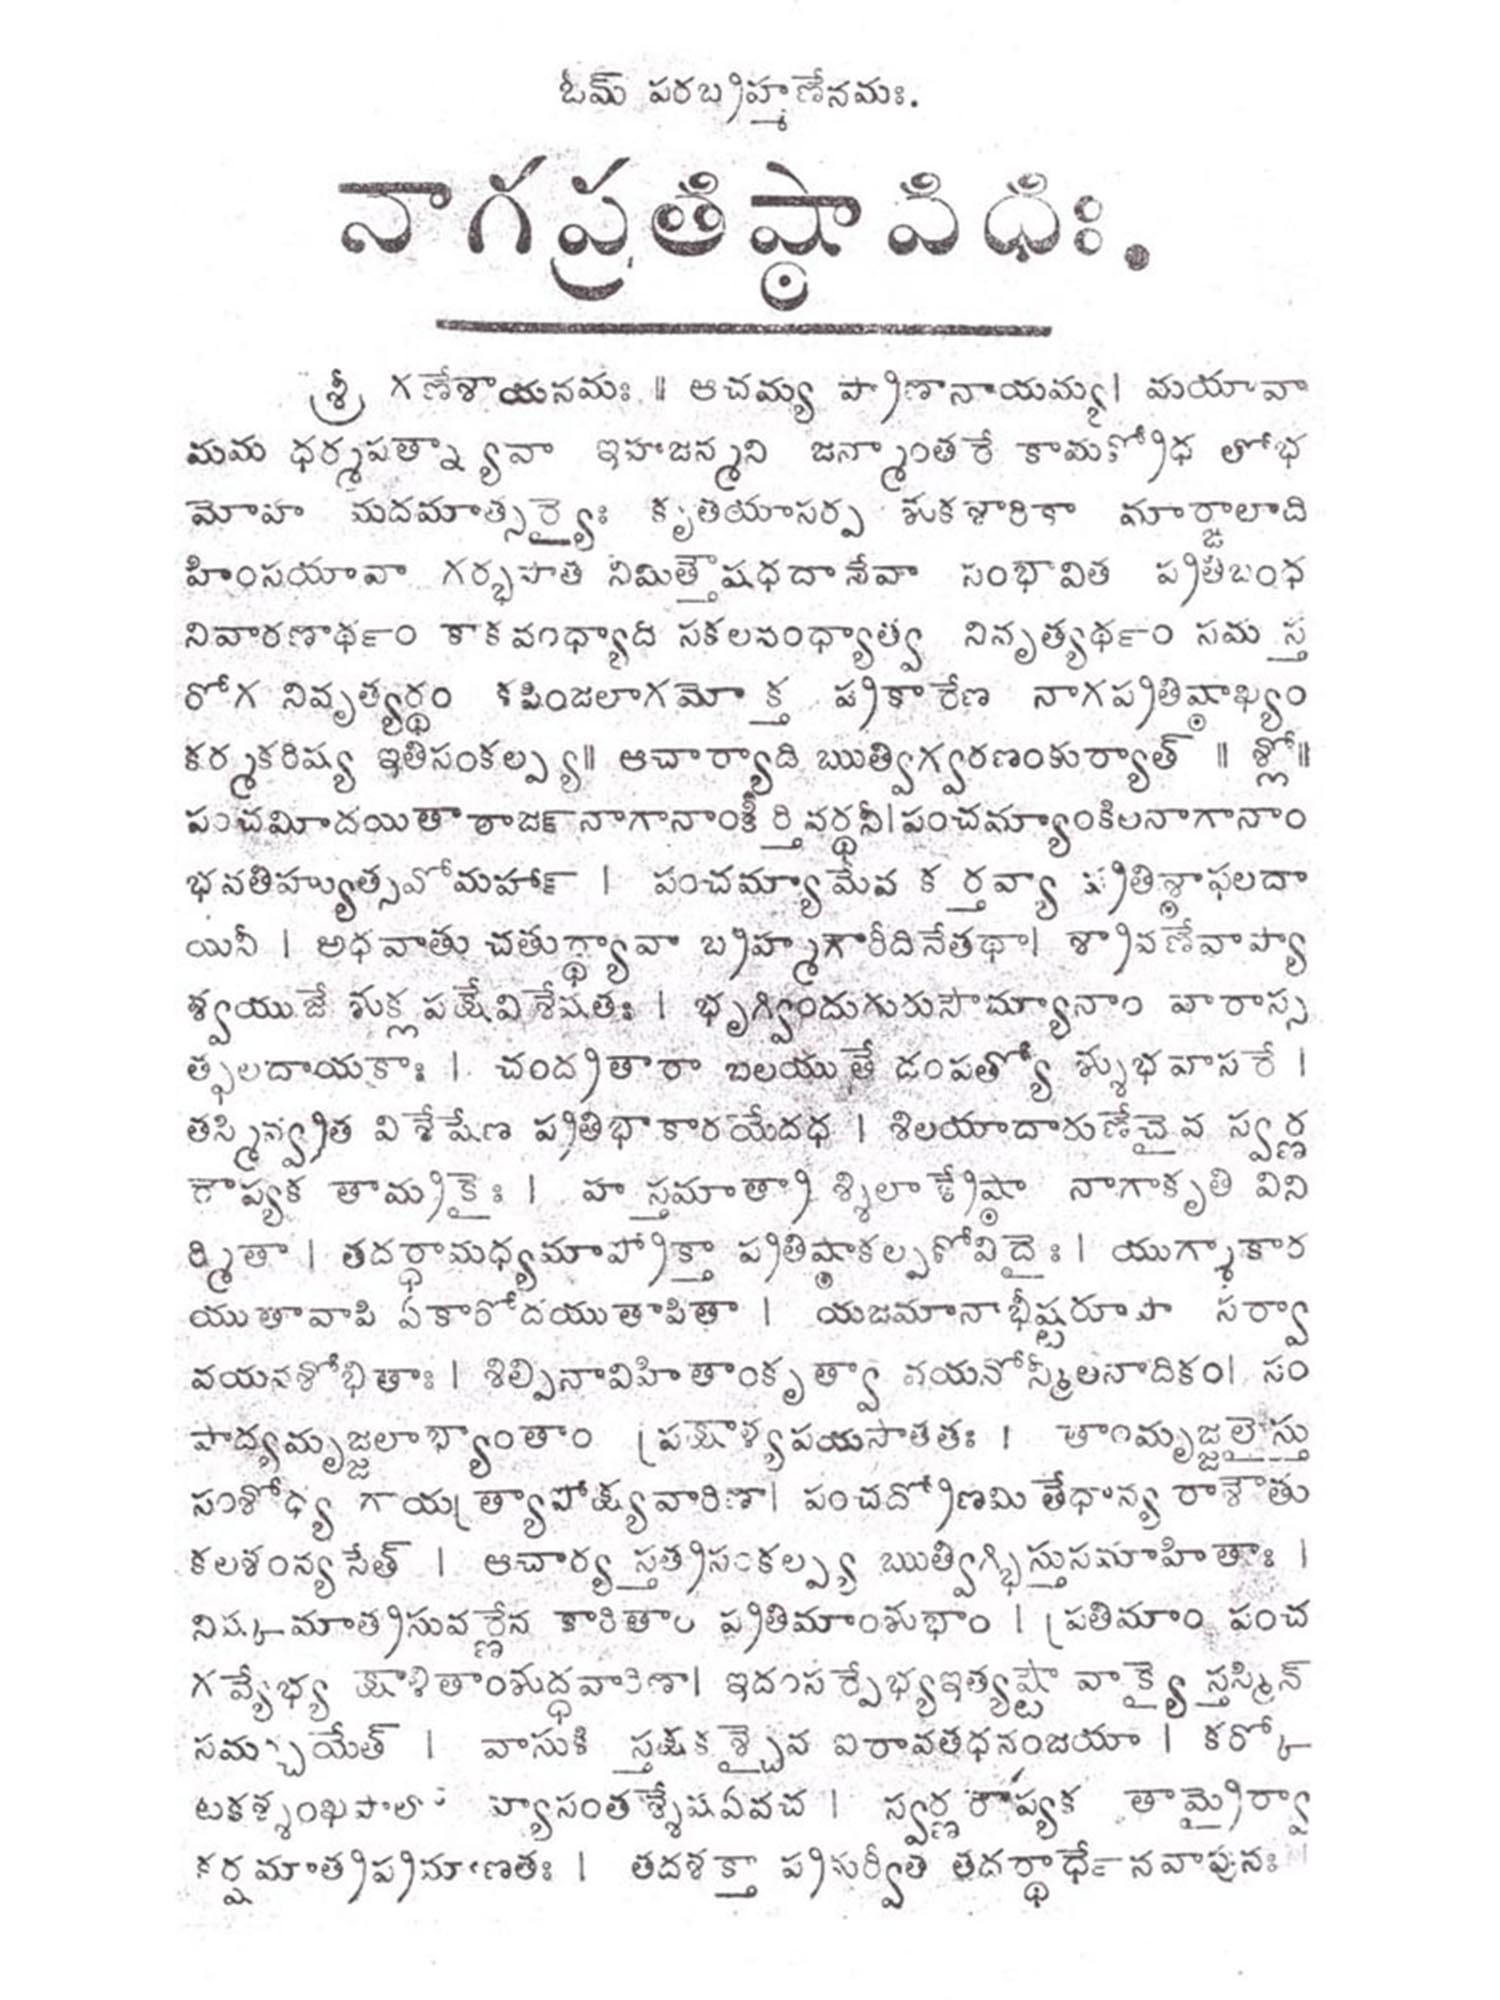 ఓమ్ పరబ్రహ్మణేనమః.
నాగప్రతిష్ఠావిధిః.
శ్రీ గణేశాయనమః ॥ ఆచమ్య ప్రాణానాయమ్య। మయావా
మమ ధర్మపత్న్యావా ఇహజన్మని జన్మాంతరే కామక్రోధ లోభ
మోహ మదమాత్సర్య్యైః కృతయాసర్ప శుకశారికా మార్జాలాది
హింసయావా గర్భపాత నిమిత్తౌషధదానేవా సంభావిత ప్రతిబంధ
నివారణార్థం కాకవంధ్యాది సకలవంధ్యాత్వ నివృత్యర్థం సమస్త
రోగ నివృత్యర్థం కపింజలాగమోక్త ప్రకారేణ నాగప్రతిష్ఠాఖ్యం
కర్మకరిష్య ఇతిసంకల్ప్య॥ ఆచార్యాది ఋత్విగ్వరణంకుర్యాత్ ॥ శ్లో॥
పంచమీదయితారాజన్ నాగానాంకీర్తివర్థనీ। పంచమ్యాంకిలనాగానాం
భవతిహ్యుత్సవోమహాన్ । పంచమ్యామేవ కర్తవ్యా ప్రతిష్ఠాఫలదా
యినీ । అధవాతు చతుర్థ్యావా బ్రహ్మగౌరీదినేతథా। శ్రావణేవాప్యా
శ్వయుజే శుక్లపక్షేవిశేషతః । భృగ్విందుగురుసౌమ్యానాం వారాస్స
త్ఫలదాయకాః । చంద్రతారా బలయుతే దంపత్యో శ్శుభవాసరే ।
తస్మిన్వ్రత విశేషేణ ప్రతిభాకారయేదధ । శిలయాదారుణేచైవ స్వర్ణ
రౌప్యక తామ్రకైః । హస్తమాత్రా శ్శిలాశ్రేష్ఠా నాగాకృతి విని
ర్మితా । తదర్ధామధ్యమాప్రోక్తా ప్రతిష్ఠాకల్పకోవిదైః । యుగ్మాకార
యుతావాపి ఏకాకారోదయుతాపితా । యజమానాభీష్టరూపా సర్వా
వయవశోభితాః । శిల్పినావిహితాంకృత్వా నయనోన్మీలనాదికం। సం
పాద్యమృజ్జలాభ్యాంతాం ప్రక్షాళ్యపయసాతతః । తాంమృజ్జలైస్తు
సంశోధ్య గాయత్ర్యాప్రోక్ష్యవారిణా। పంచద్రోణమితేధాన్య రాశౌతు
కలశంన్యసేత్ । ఆచార్య స్తత్రసంకల్ప్య ఋత్విగ్భిస్తుసమాహితాః ।
నిష్కమాత్రసువర్ణేన కారితాం ప్రతిమాంశుభాం । ప్రతిమాం పంచ
గవ్యేభ్య క్షాళితాంశుద్ధవారిణా। ఇదంసర్పేభ్యఇత్యష్టౌ వాక్యై స్తస్మిన్
సమర్చయేత్ । వాసుకి స్తక్షక శ్చైవ ఐరావతధనంజయా । కర్కో
టకశ్శంఖపాలో హ్యనంతశ్శేషఏవచ । స్వర్ణరౌప్యక తామ్రైర్వా
కర్షమాత్రప్రమాణతః । తదశక్తా ప్రకుర్వీత తదర్థార్ధేనవాపునః